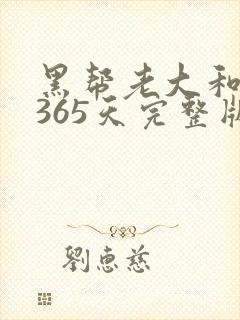 黑帮老大和
365天完整版
劉惠慈